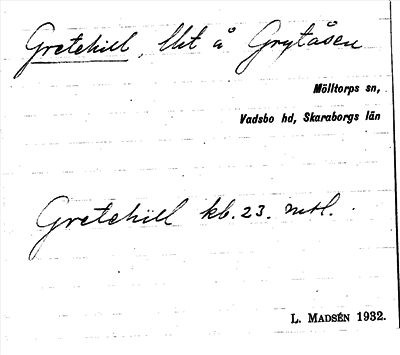 Gretehill, lht å Grytåsen
Mölltorps sn,
Vadsbo hd, Skaraborgs län
Gretehill kb. 23. mtl.
L. MADSÉN 1932.